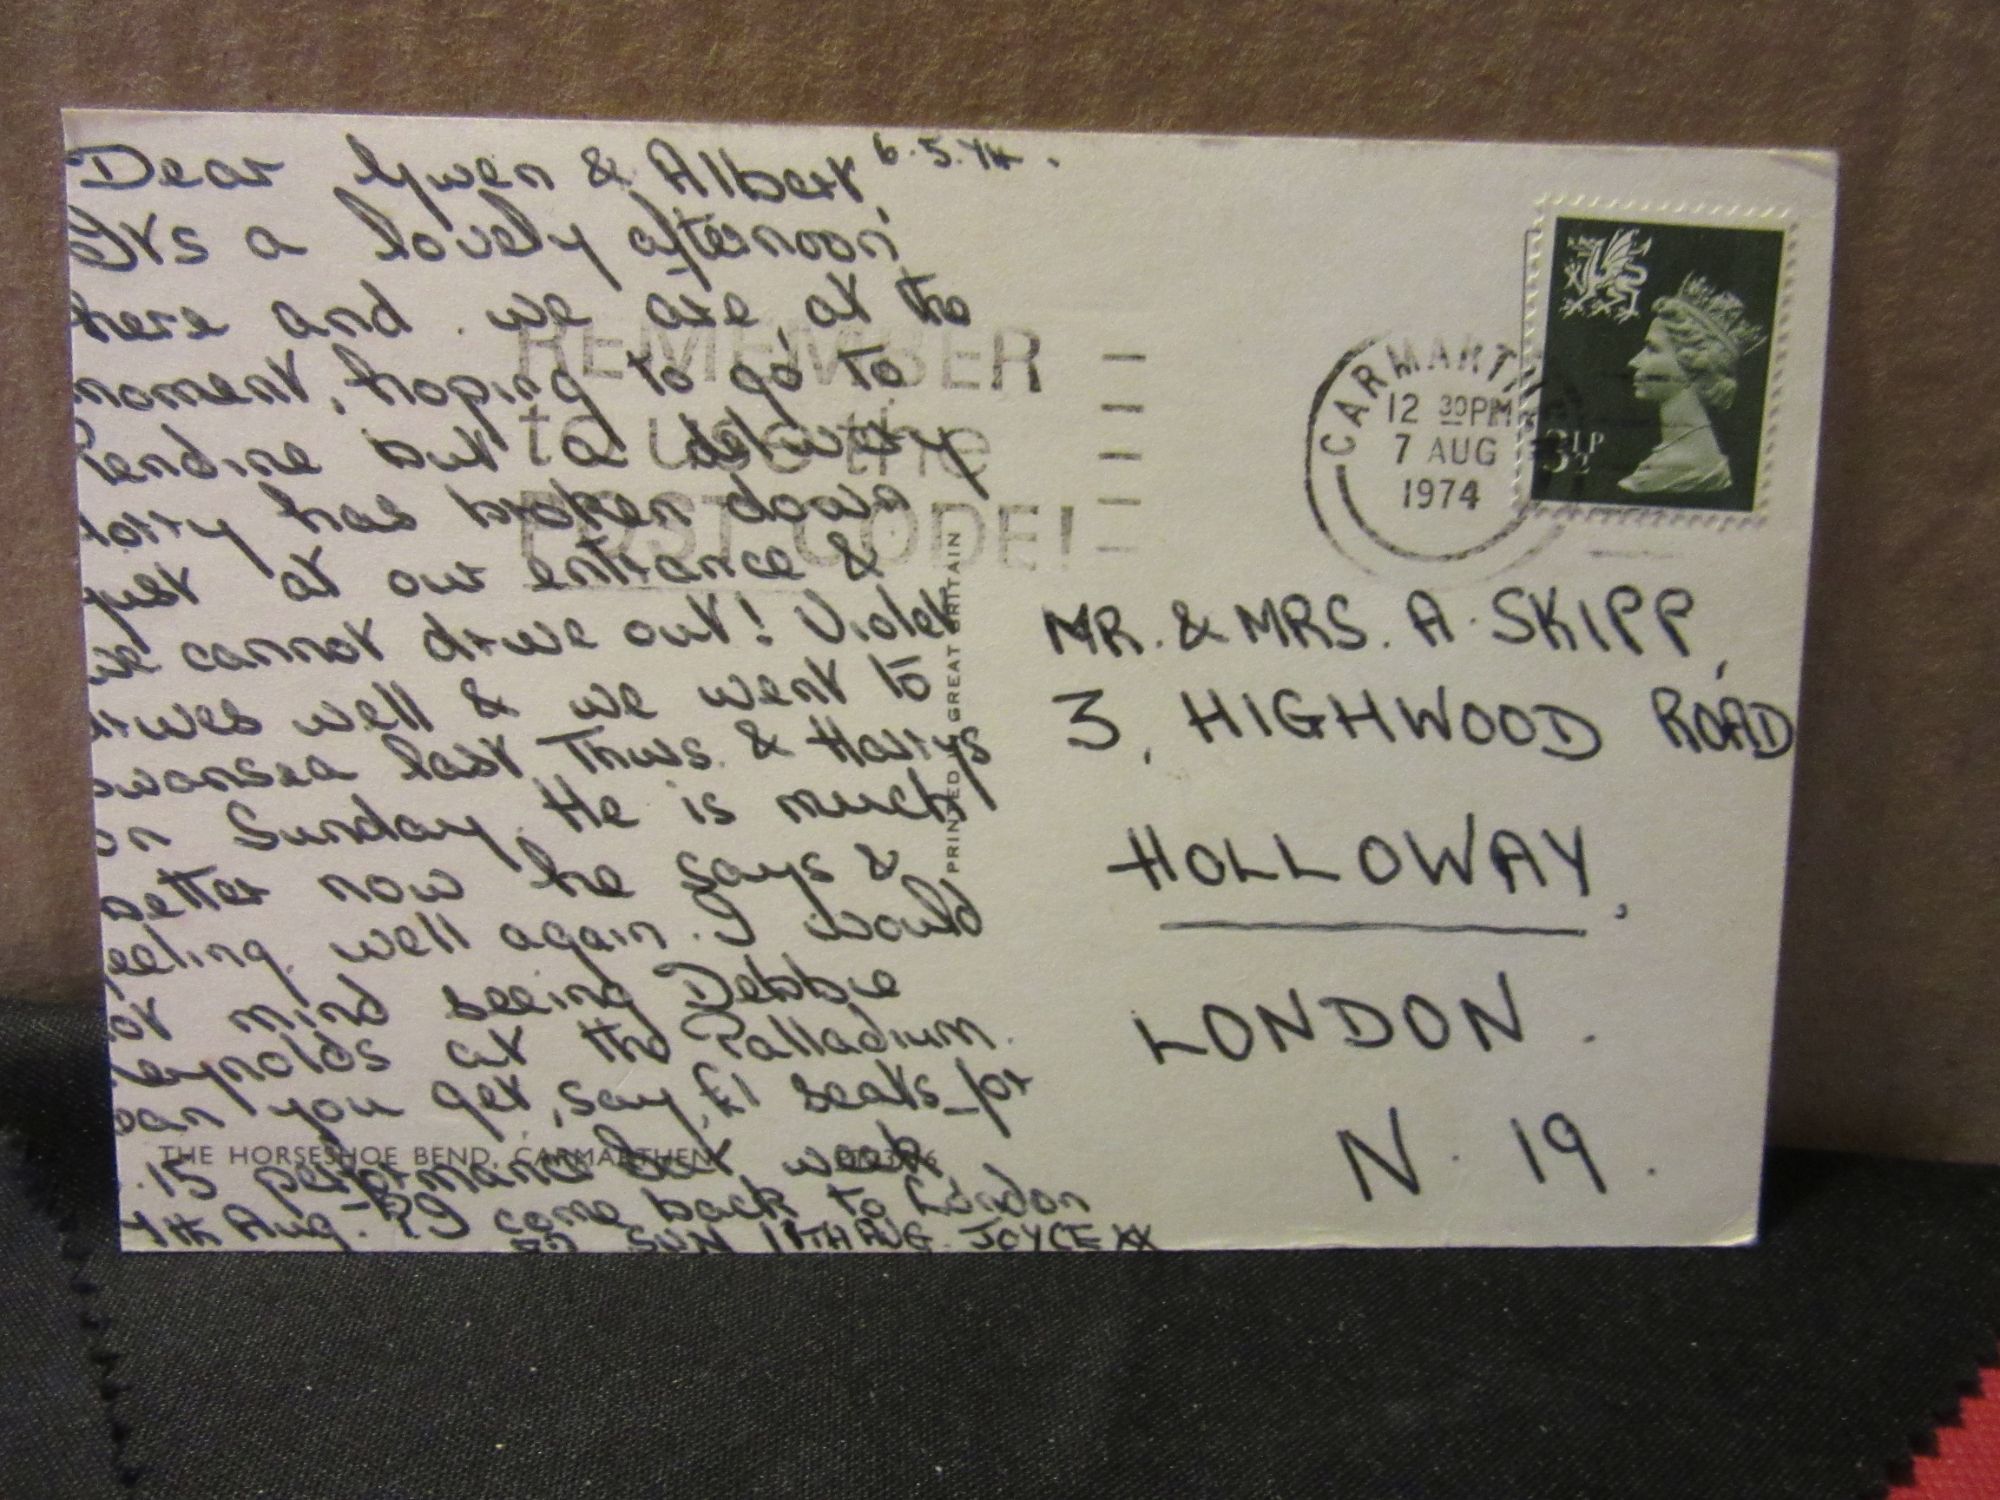 Dear Gwen & Albert, 6.5.74.
It's a lovely afternoon
here and we are, at the
moment, hoping to go to
Pendine but a delivery
lorry has broken down
just at our entrance &
we cannot drive out! Violet
drives well & we went to
Swansea last Thurs. & Harrys
on Sunday. He is much
better now he says &
feeling well again. I would
not mind seeing Debbie
Reynolds at the Palladium.
Can you get, say, £1 seats for
.15 performance last week
Aug. come back to London
SUN 11TH AUG. JOYCE XX
REMEMBER
to use the
POST CODE!
PRINTED IN GREAT BRITAIN
THE HORSESHOE BEND, CARMARTHEN
CARMARTHEN
12 30PM
7 AUG
1974
3½P
MR. & MRS. A. SKIPP,
3, HIGHWOOD ROAD
HOLLOWAY,
LONDON.
N. 19.